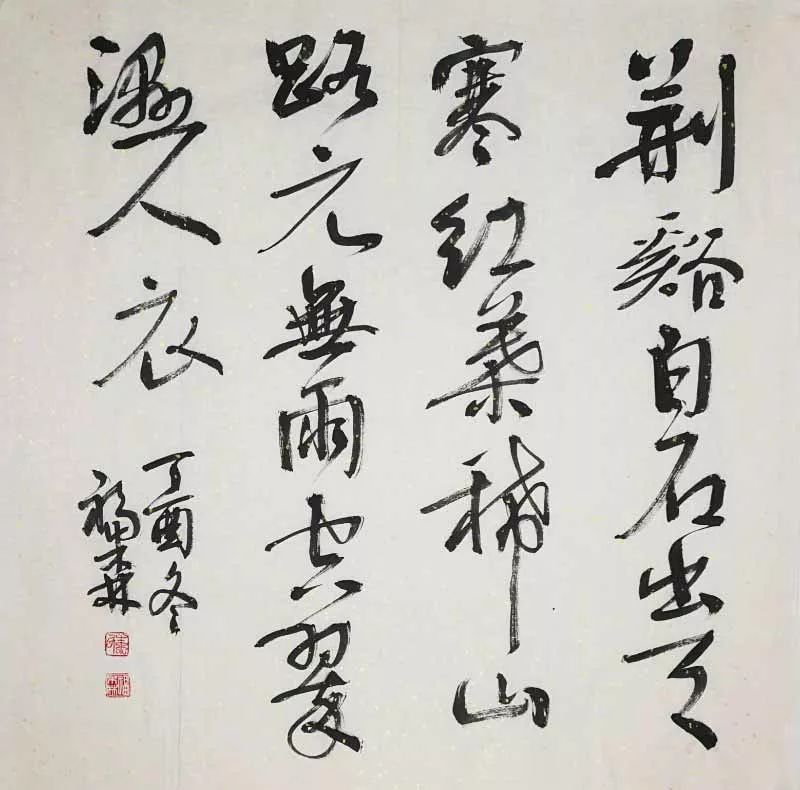 荆谿白石出天
寒红葉稀山
路元無雨空翠
濕人衣
丁酉冬
福森